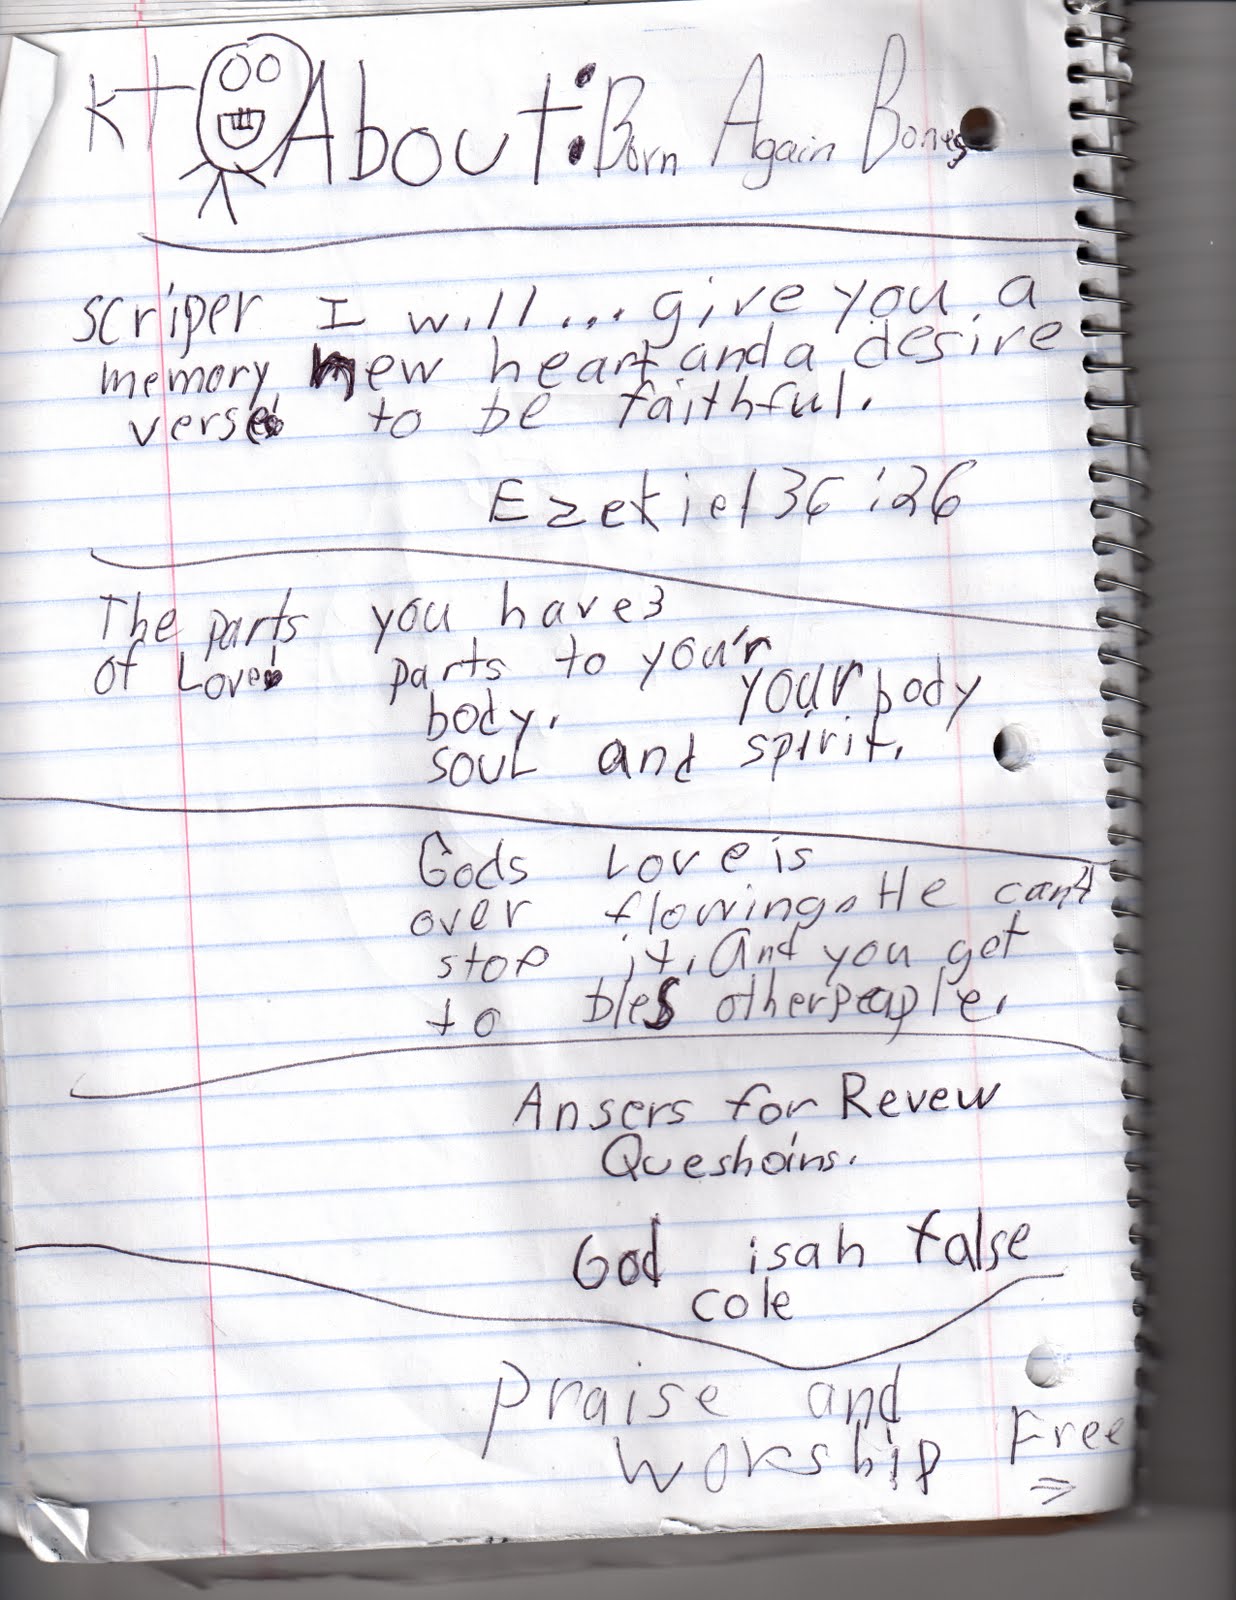 KT About: Born Again Bones
scriper I will... give you a
memory new heart and a desire
verse: to be faithful.
Ezekiel 36:26
The parts you have 3
of Love: parts to you'r
body. your body
soul and spirit.
Gods Love is
over flowing. He can't
stop it. And you get
to bles other peaple.
Ansers for Revew
Queshoins.
God isah false
cole
Praise and
Worship Free